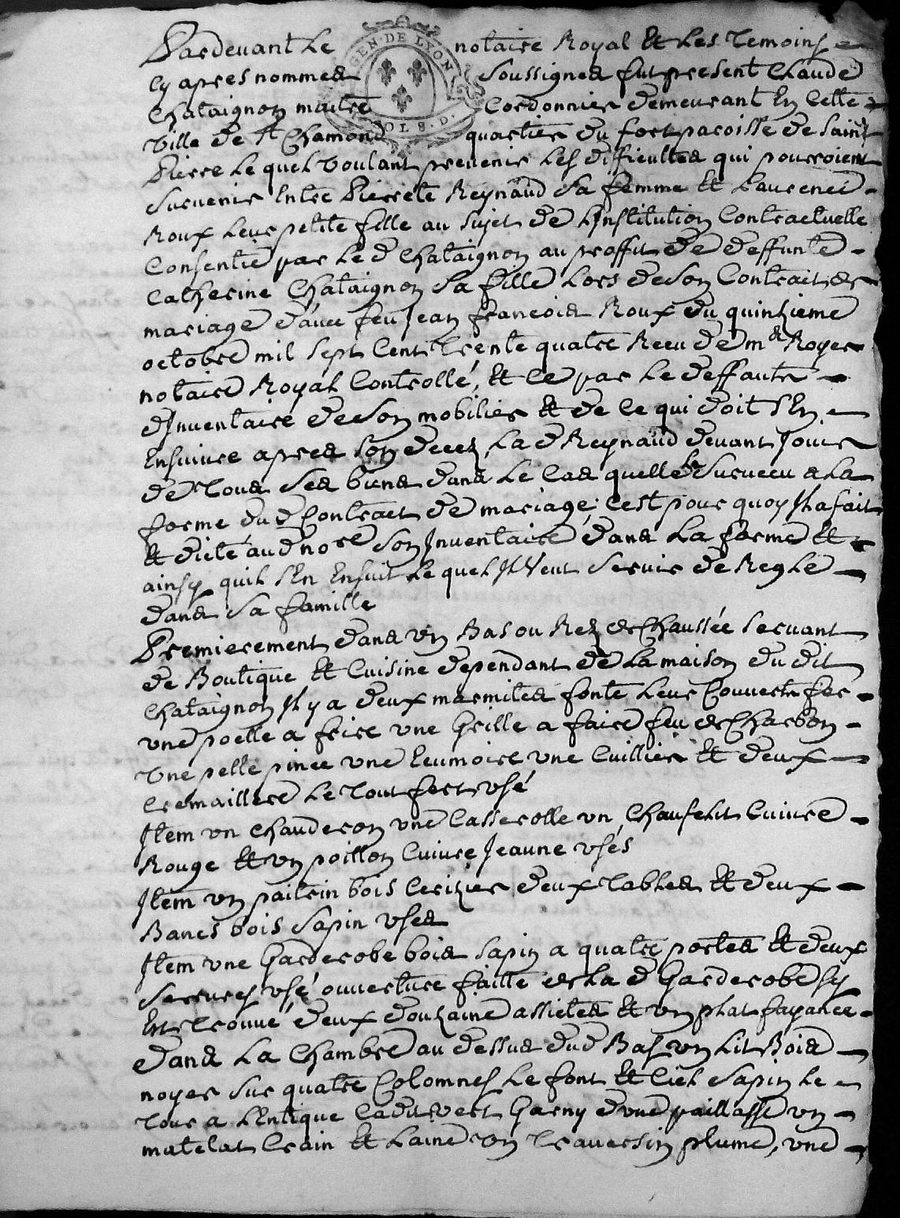 Pardevant Le notaire Royal Et Les Temoins
Cy apres nommes soussignes fut present Claude
Chataignon maitre Cordonnier demeurant En Cette
Ville de St Chamond quartier du fort paroisse de Saint
Pierre Lequel Voulant prevenir Les difficultes qui pourroient
Survenir Entre Pierrete Reynaud Sa femme Et Laurence
Roux Leur petite fille au Sujet de L'Institution Contractuelle
Consentie par Le d Chataignon au proffit de deffunte
Catherine Chataignon Sa fille Lors de Son Contrait de
mariage d'avec feu Jean francois Roux du quinzieme
octobre mil Sept Cent Trente quatre Recu de me Royer
notaire Royal Controllé, Et Ce par Le deffaut
d'Inventaire de Son mobilier Et de Ce qui doit S'En
Ensuivre apres Son decez, La d Reynaud devant Jouir
de Tous Ses biens dans Le Cas quelle Survecu a La
forme du d Contrait de mariage; C'est pour quoy Il a fait
Et dicté aud nore Son Inventaire dans La forme Et
ainsy quil S'En Ensuit Le quel Il Veut Servir de Regle
dans Sa famille
Premierement dans un Bas ou Rez de Chaussée Servant
de Boutique Et Cuisine dependant de La maison du dit
Chataignon Il y a deux marmites fonte Leur Couvert fer
une poelle a frire une Grille a faire feu de Charbon
une pelle pince une Ecumoire une Cuillier Et deux
Cremaillere Le Tout fort usé
Item un chauderon une Casserolle un Chaufelit Cuivre
Rouge Et un poillon Cuivre Jeaune usés
Item un paitrin bois Cerizier deux Tables Et deux
Bancs bois Sapin uses
Item une Garderobe bois Sapin a quatre portes Et deux
Serrures usé ouverture faitte de La d Garderobe Sy
Est Trouvé deux douzaine assietes Et un plat fayance
dans La Chambre au dessus dud Bas un Lit Bois
noyer Sur quatre Colomnes Le font Et Ciel Sapin Le
Tour a L'Entique Cadis vert Garny d'une paillasse un
matelat Crain Et Laine un Traversin plume, une